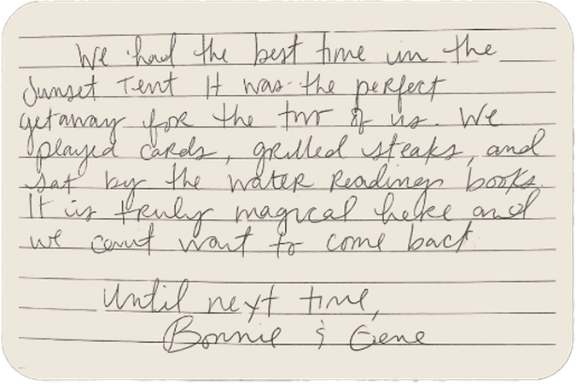 We had the best time in the
Sunset Tent It was the perfect
getaway for the two of us. We
played cards, grilled steaks, and
sat by the water reading books.
It is truly magical here and
we cant wait to come back
Until next time,
Bonnie & Gene